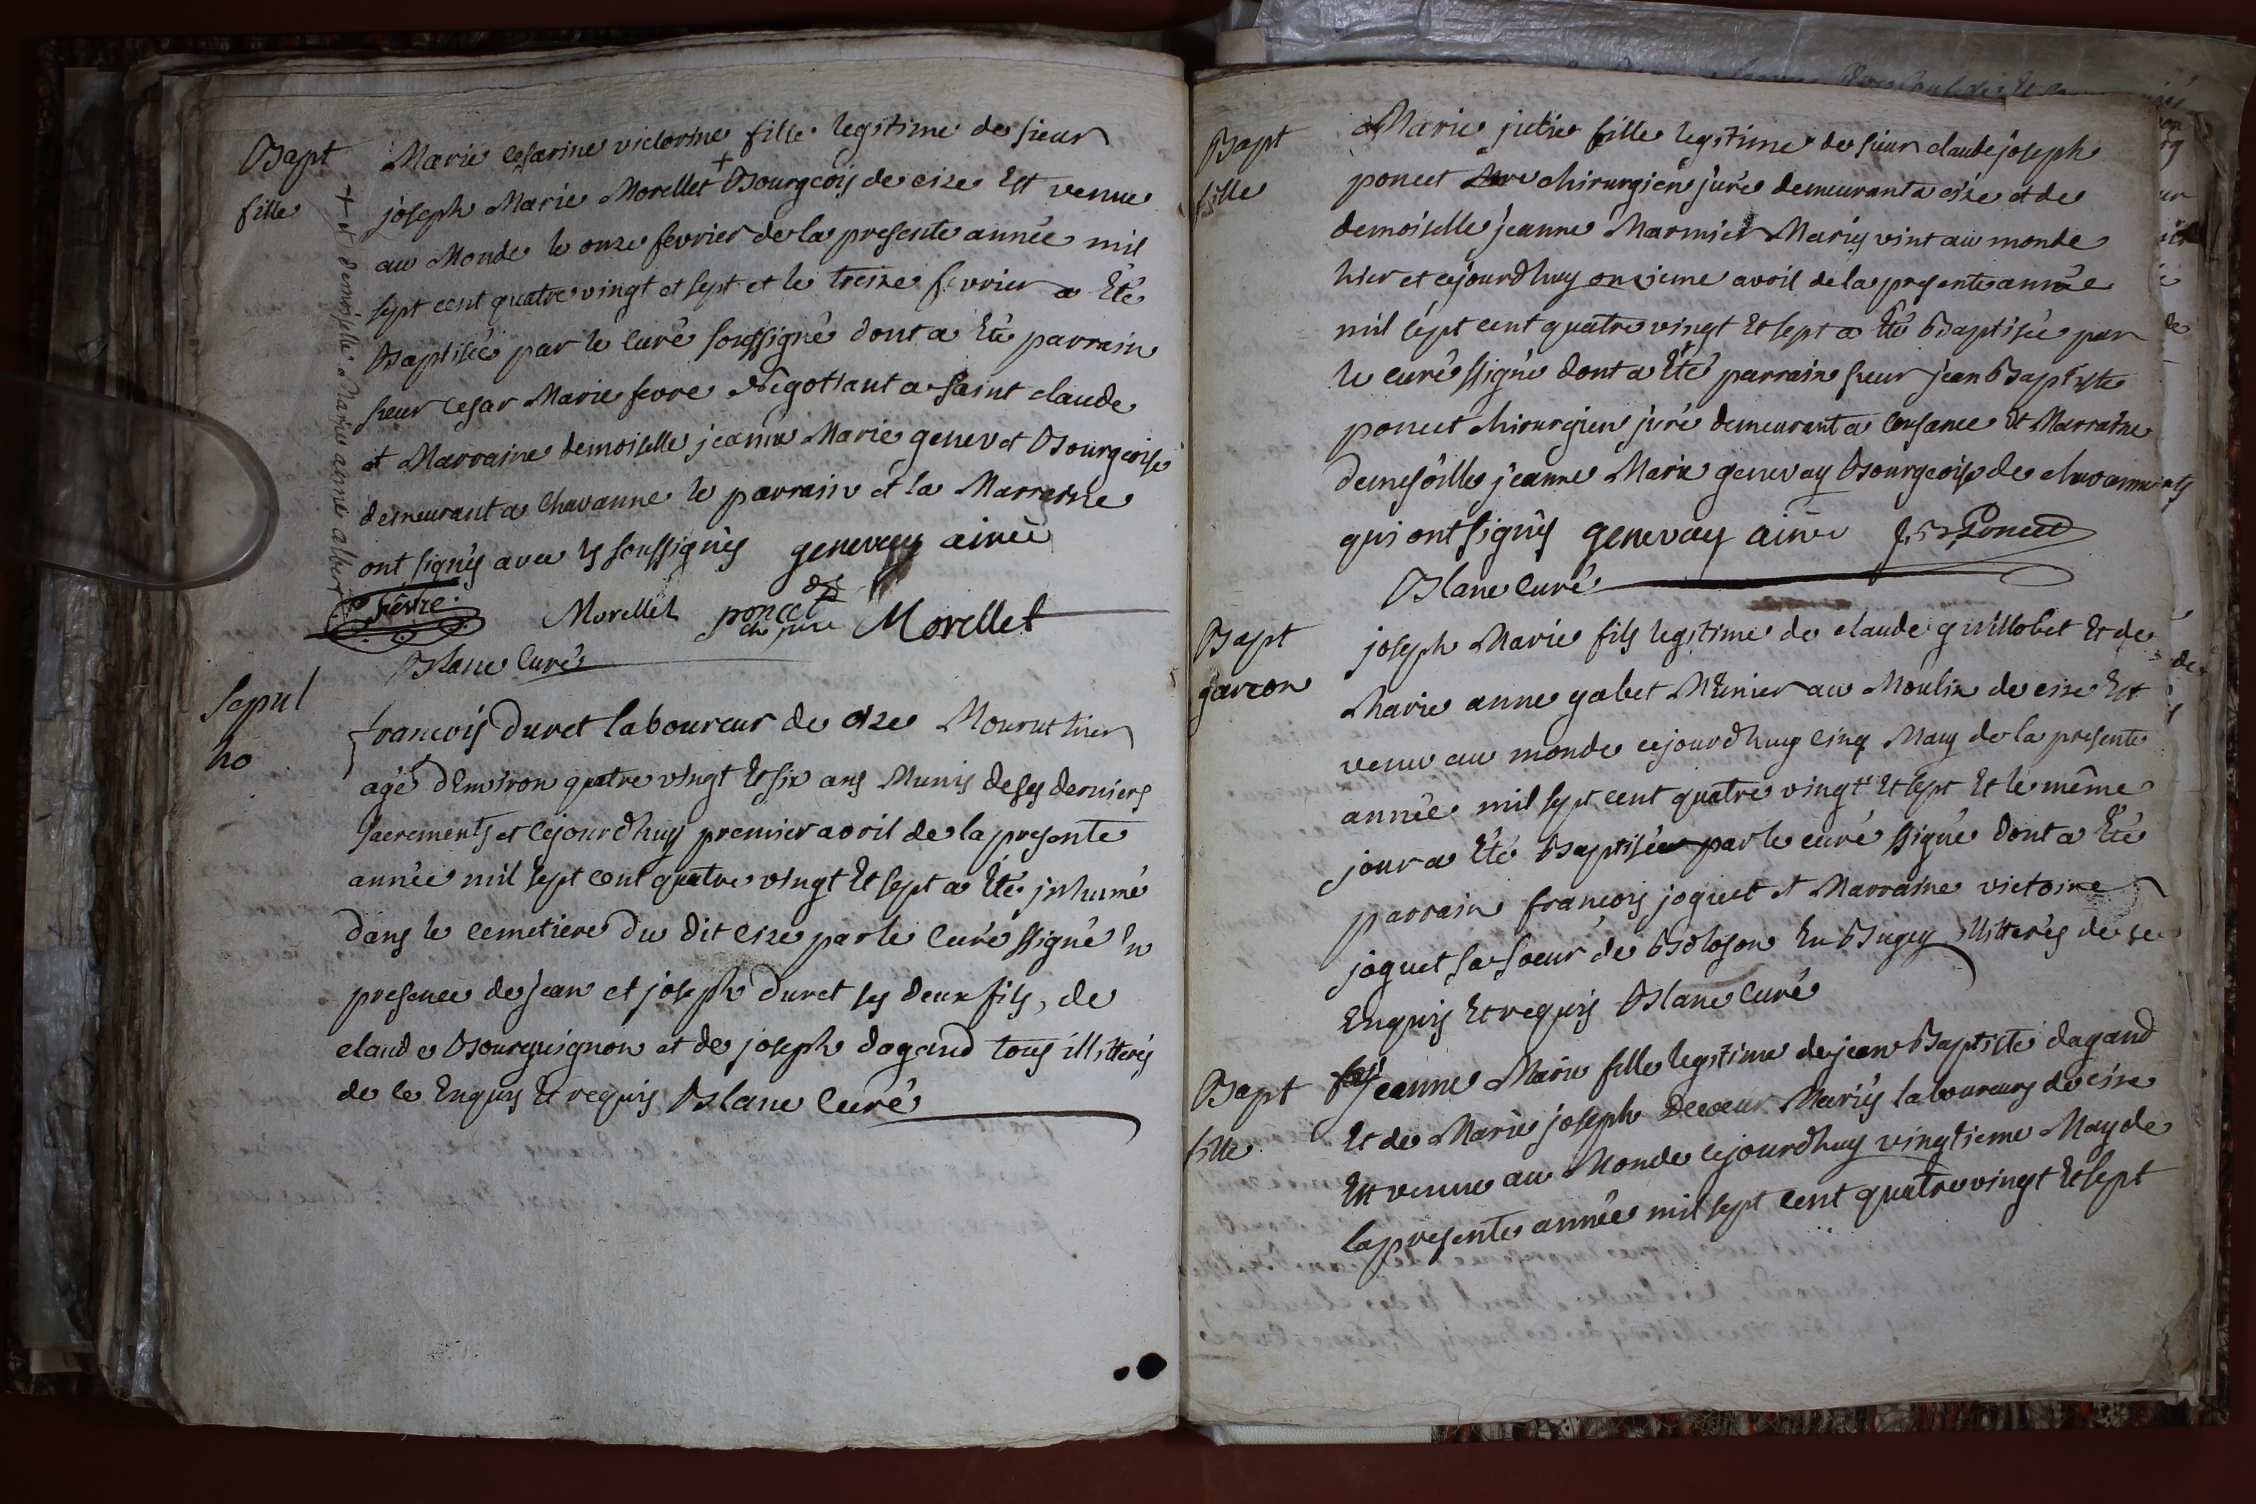 Bapt
fille
Marie cesarine victorine fille legitime de sieur
joseph Marie Morellet + Bourgeois de cize Est venue
au Monde le onze fevrier de la presente année mil
sept cent quatre vingt et sept et le treize fevrier a Eté
Baptisée par le curé soussigné dont a Eté parrain
sieur cesar Marie fevre Négotiant a Saint claude
et Marraine demoiselle jeanne Marie genevet Bourgeoise
demeurant a Chavanne le parrain et la Marraine
ont signés avec les soussignés genevay ainée
+ et demoiselle Marie anne albert
fevre Morellet poncet chir juré Morellet
Blanc Curé
Sepul
ho
francois Duret laboureur de cize Mourut hier
agé d'Environ quatre vingt Et six ans Munis de ses derniers
sacrements et cejourdhuy premier avril de la presente
année mil sept cent quatre vingt Et sept a Eté inhumé
dans le cemetiere du dit cize par le curé ssigné En
presence de jean et joseph duret ses deux fils, de
claude Bourguignon et de joseph dagand tous illitterés
de ce Enquis Et requis Blanc curé
Bapt
fille
Marie julie fille legitime de sieur claude joseph
poncet chirurgien juré demeurant a cize et de
demoiselle jeanne Marmier Mariés vint au monde
hier et cejourdhuy onzieme avril de la presente année
mil sept cent quatre vingt Et sept a Eté Baptisée par
le curé ssigné dont a Eté parrain sieur jean Baptiste
poncet chirurgien juré demeurant a Consance Et Marraine
demesoille jeanne Marie genevay Bourgeoise de chavannes
qui ont signés genevay ainée J. B. Poncet
Blanc curé
Bapt
garcon
joseph Marie fils legitime de claude guillobet Et de
Marie anne gabet Mûnier au Moulin de cize Est
venu au monde cejourdhuy cinq May de la presente
année mil sept cent quatre vingt Et sept Et le même
jour a Eté Baptisé par le curé ssigné dont a Eté
parrain francois joguet et Marraine victoire
joguet sa soeur de Boloson En Bugey illitterés de ce
Enquis Et requis Blanc curé
Bapt
fille
jeanne Marie fille legitime de jean Baptiste dagand
Et de Marie joseph Decoeur Mariés laboureurs de cize
Est venue au Monde cejourdhuy vingtieme May de
la presente année mil sept cent quatre vingt Et sept